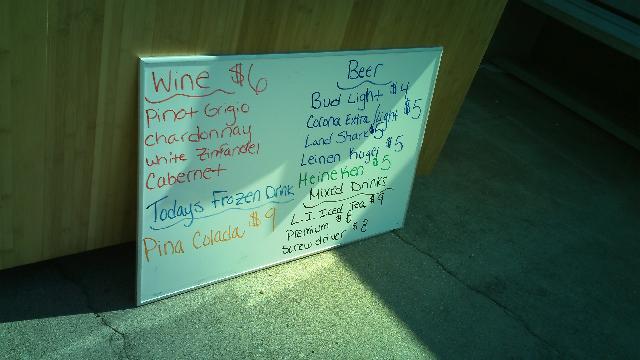 Wine $6
Pinot Grigio
chardonnay
white Zinfandel
Cabernet
Todays Frozen Drink
Pina Colada $9
Beer
Bud Light $4
Corona Extra/Light $5
Land Shark $5
Leinen Kugel $5
Heineken $5
Mixed Drinks
L.I. Iced Tea $9
Premium $6
Screwdriver $8